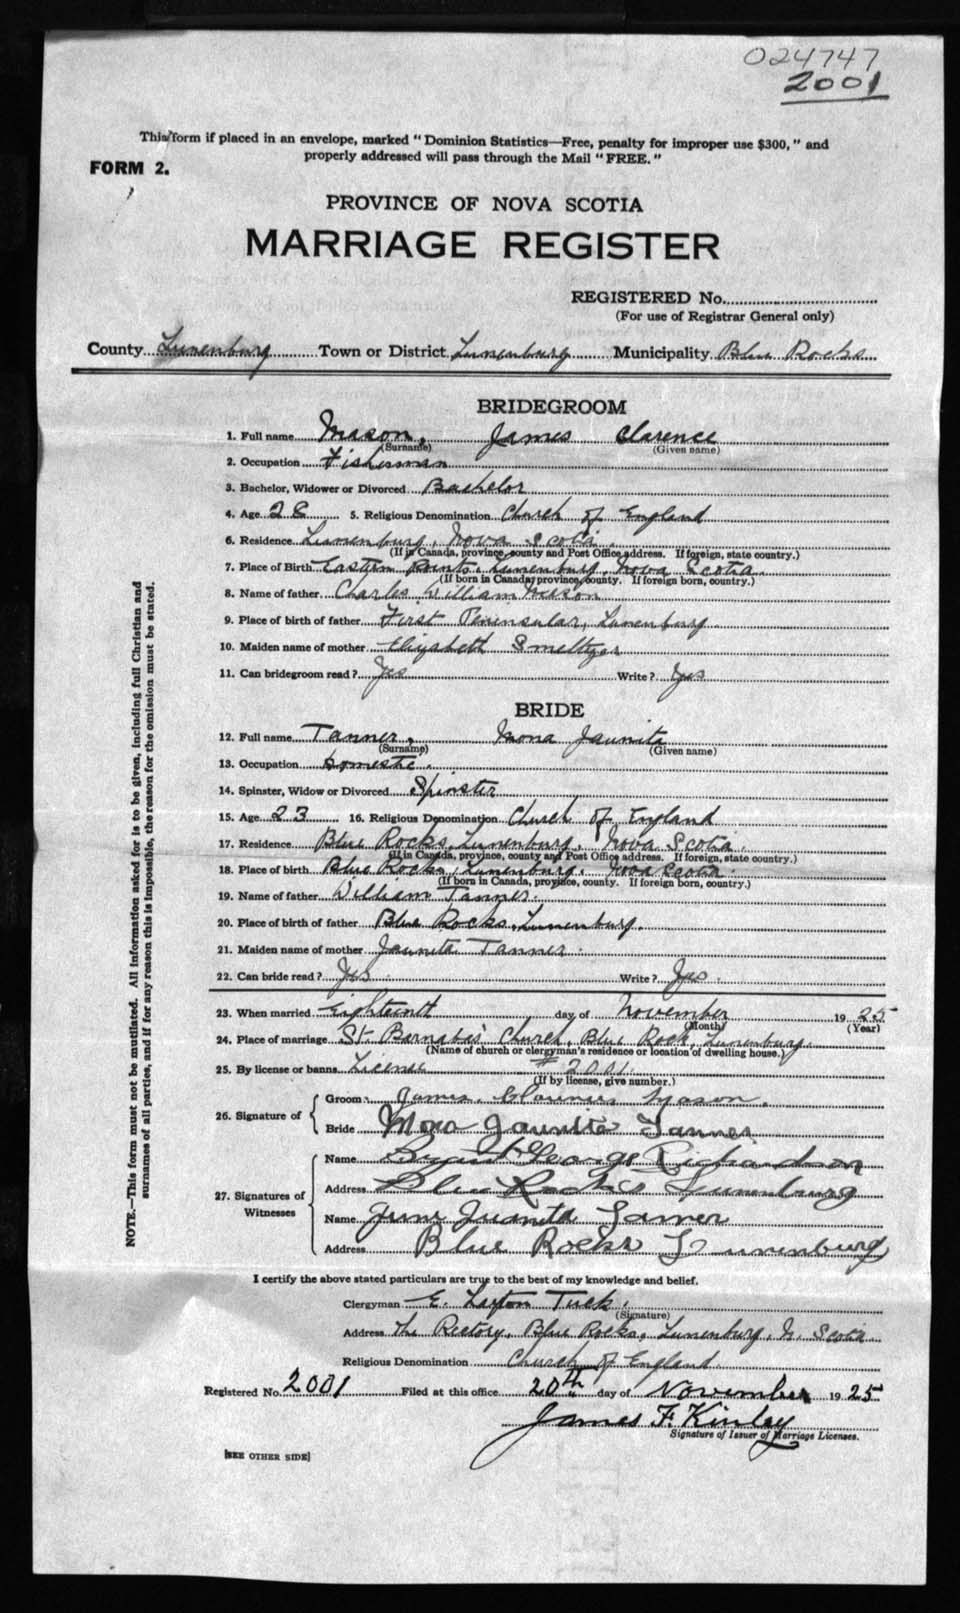 024747
2001
This form if placed in an envelope, marked "Dominion Statistics—Free, penalty for improper use $300," and
properly addressed will pass through the Mail "FREE."
FORM 2.
PROVINCE OF NOVA SCOTIA
MARRIAGE REGISTER
REGISTERED No.
(For use of Registrar General only)
County Lunenburg Town or District Lunenburg Municipality Blue Rocks
BRIDEGROOM
1. Full name Mason, James Clarence
(Surname) (Given name)
2. Occupation Fisherman
3. Bachelor, Widower or Divorced Bachelor
4. Age 28 5. Religious Denomination Church of England
6. Residence Lunenburg, Nova Scotia.
(If in Canada, province, county and Post Office address. If foreign, state country.)
7. Place of Birth Eastern Points, Lunenburg, Nova Scotia.
(If born in Canada, province, county. If foreign born, country.)
8. Name of father Charles William Mason
9. Place of birth of father First Peninsular, Lunenburg
10. Maiden name of mother Elizabeth Smeltzer
11. Can bridegroom read? Yes Write? Yes
BRIDE
12. Full name Tanner, Mona Jaunita
(Surname) (Given name)
13. Occupation Domestic.
14. Spinster, Widow or Divorced Spinster
15. Age 23 16. Religious Denomination Church of England
17. Residence Blue Rocks, Lunenburg, Nova Scotia.
(If in Canada, province, county and Post Office address. If foreign, state country.)
18. Place of birth Blue Rocks, Lunenburg, Nova Scotia.
(If born in Canada, province, county. If foreign born, country.)
19. Name of father William Tanner.
20. Place of birth of father Blue Rocks, Lunenburg.
21. Maiden name of mother Jaunita Tanner.
22. Can bride read? Yes Write? Yes
23. When married Eighteenth day of November 1925
(Month) (Year)
24. Place of marriage St. Barnabas' Church, Blue Rock, Lunenburg.
(Name of church or clergyman's residence or location of dwelling house.)
25. By license or banns License # 2001.
(If by license, give number.)
26. Signature of
Groom James Clarence Mason.
Bride Mona Jaunita Tanner
27. Signatures of Witnesses
Name George Richardson
Address Blue Rocks Lunenburg
Name Juanita Tanner
Address Blue Rocks Lunenburg
I certify the above stated particulars are true to the best of my knowledge and belief.
Clergyman E. Layton Tuck.
(Signature)
Address The Rectory, Blue Rocks, Lunenburg, N. Scotia
Religious Denomination Church of England.
Registered No. 2001 Filed at this office 20th day of November 1925
James F. Kinley
Signature of Issuer of Marriage Licenses.
[SEE OTHER SIDE]
NOTE.—This form must not be mutilated. All information asked for is to be given, including full Christian and
surnames of all parties, and if for any reason this is impossible, the reason for the omission must be stated.